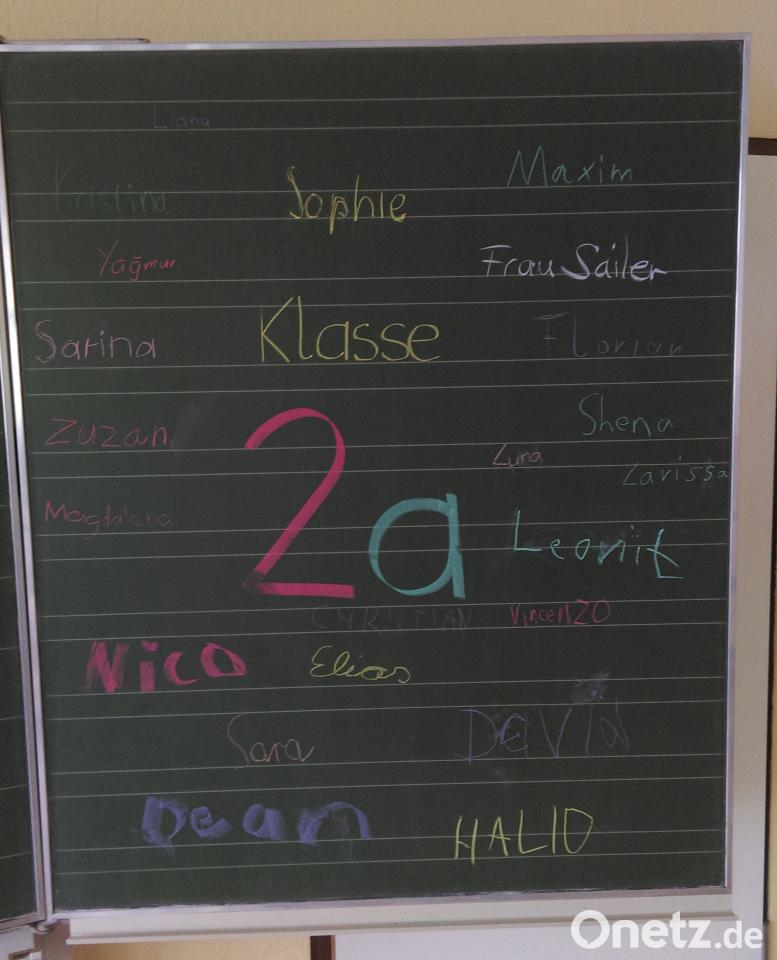 Liana
Maxim
Kristina
Sophie
Yağmur
Frau Sailer
Sarina
Klasse
Florian
Zuzan
Shena
Luna
Larissa
2a
Magdalena
Leonit
CHRISTIAN
VincenZO
Nico
Elias
Sara
DAVId
Dean
HALID
Onetz.de